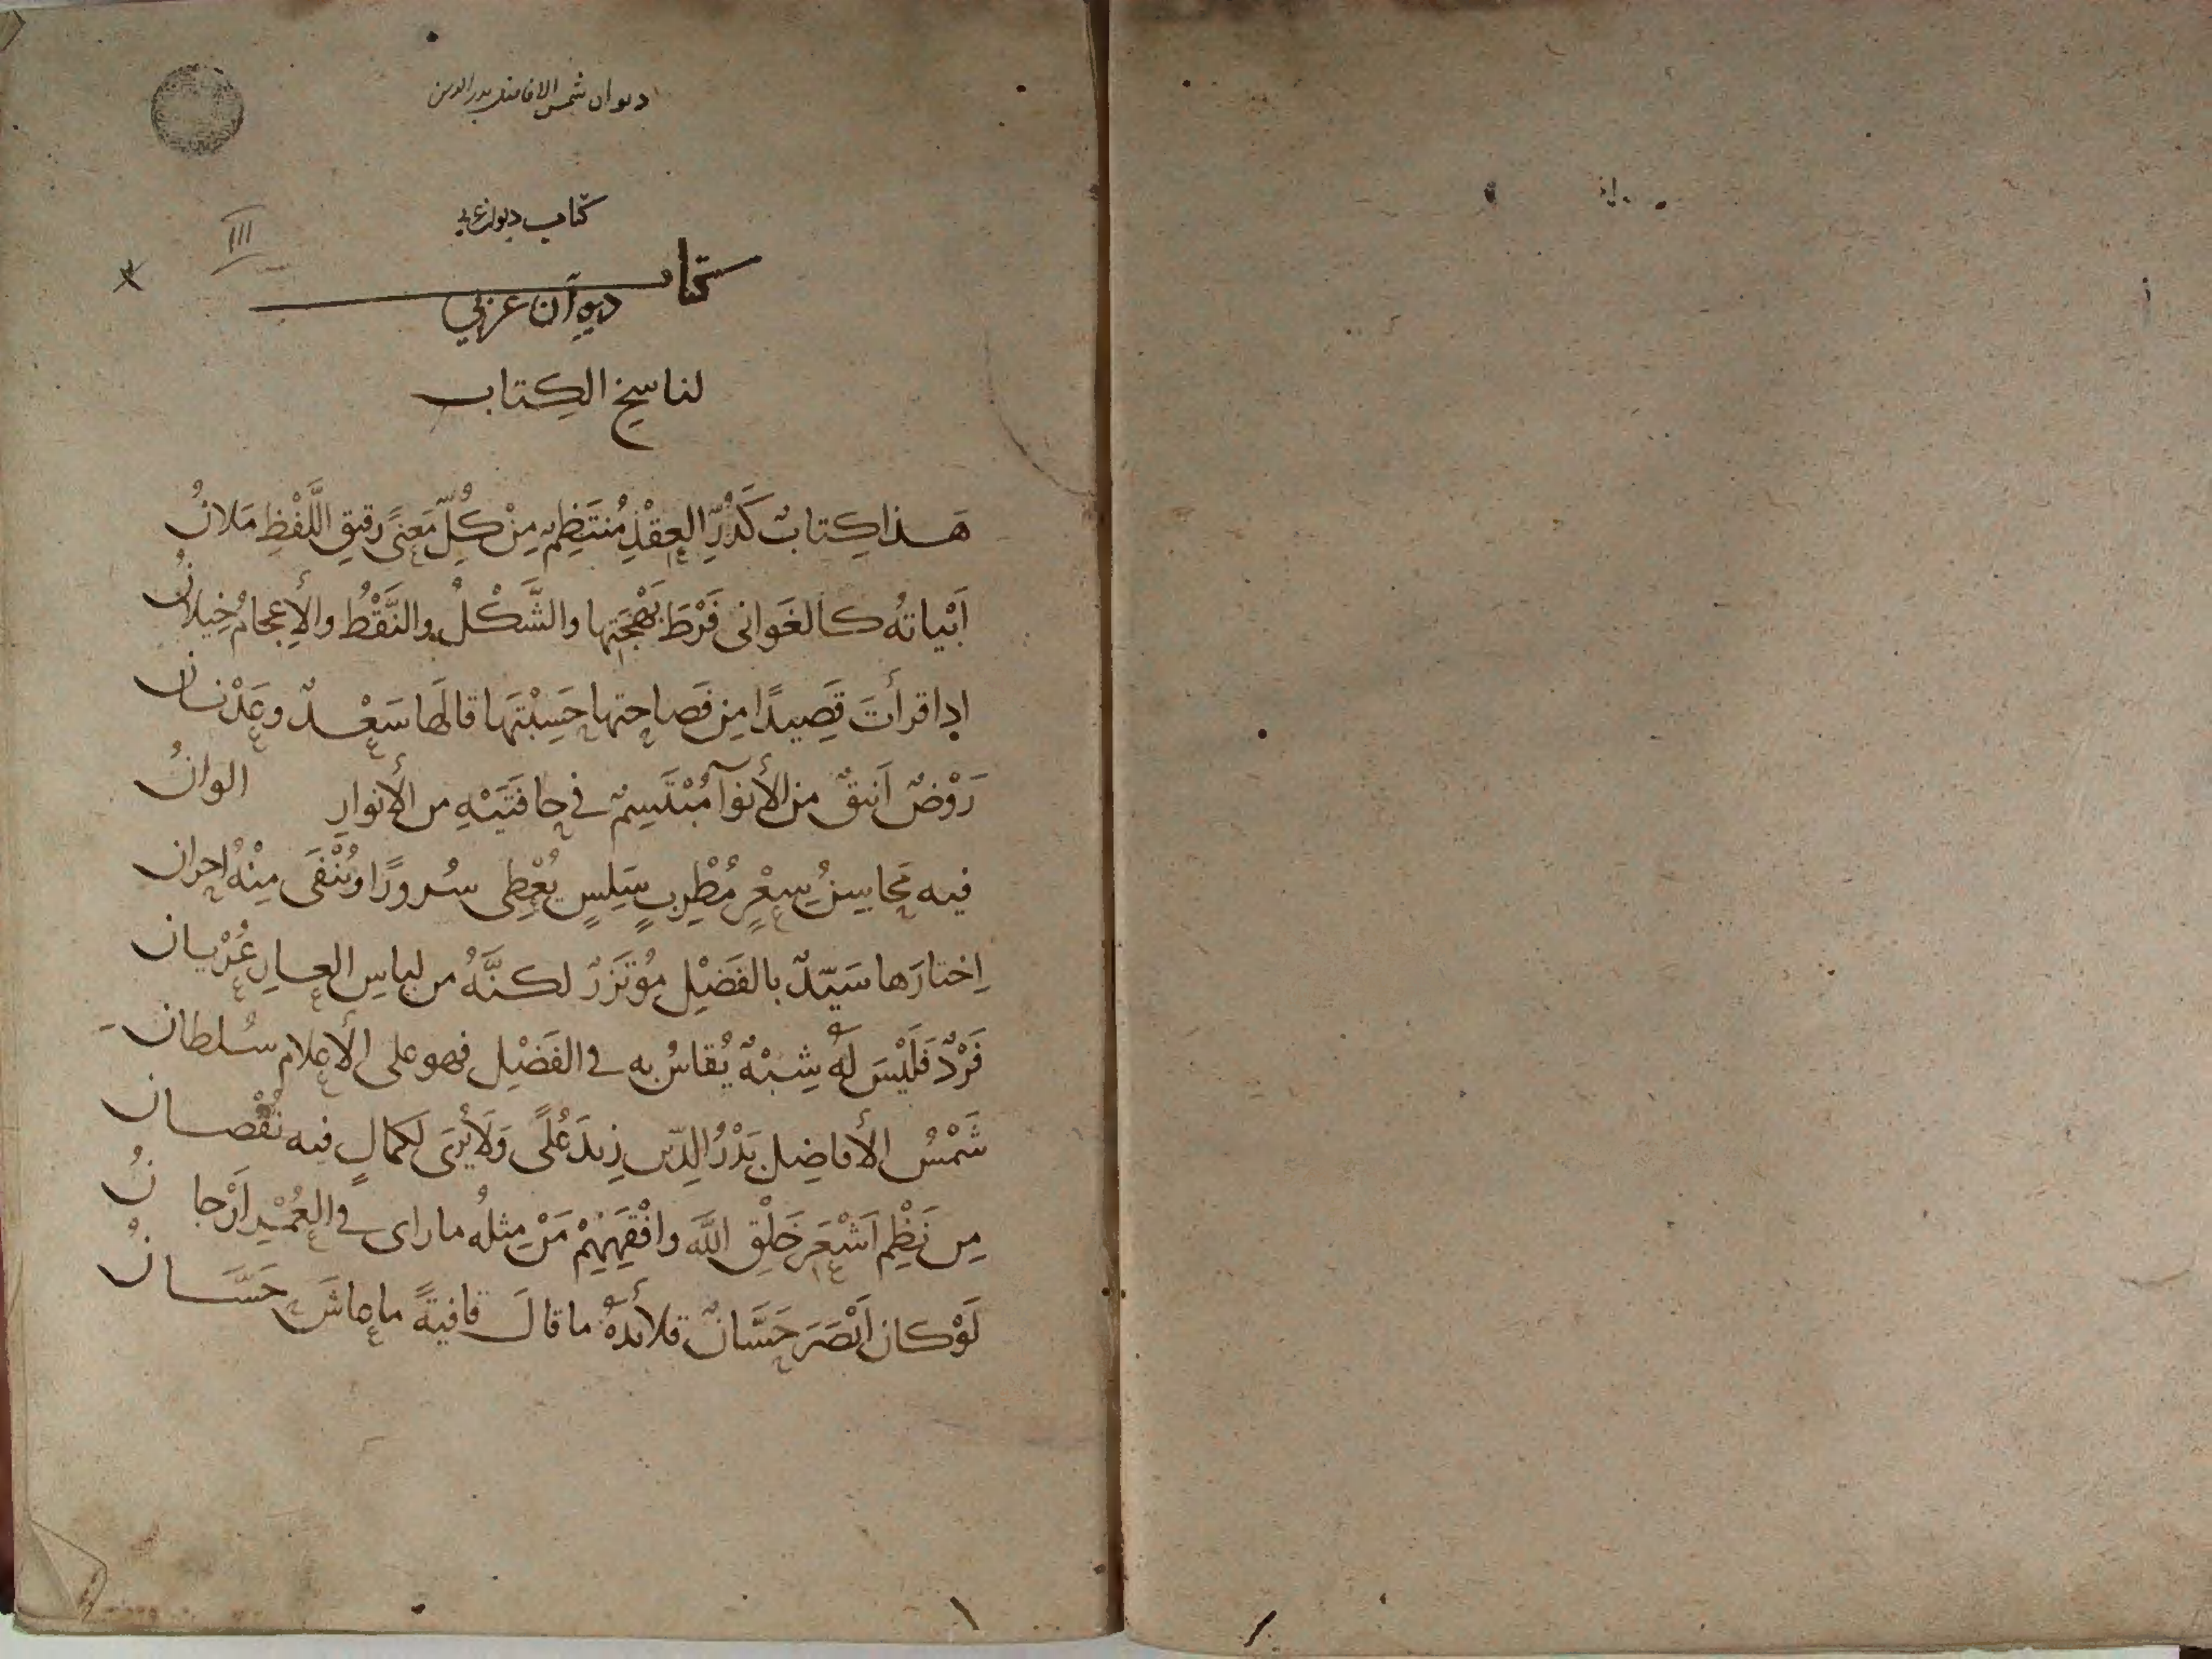 ديوان شمس الافاضل بدر الدين
كتاب ديوان عربي
كتاب
ديوان عربي
لناسخ الكتاب
هَذا كِتابٌ كَدُرِّ العِقْدِ مُنتَظِمٌ مِنْ كُلِّ مَعنىً رقيقِ اللَّفْظِ مَلانُ
اَبْياتهُ كالغَوانى فَرْطَ بَهْجَتِها والشَّكْلُ والنَّقْطُ والأِعجامُ خِيلانُ
اِذا قرأتَ قَصِيدًا مِن فَصاحتها حَسِبْتَها قالَها سَعْدٌ وعَدْنان
رَوْضٌ اَنيقٌ من الأنوآ مُبْتَسِمٌ في حافَتَيْهِ من الأنوارِ الوانُ
فيه مَحاسِنُ شِعْرٍ مُطْرِبٍ سَلِسٍ يُعْطِى سُرورًا وتُنْفَى مِنْهُ احزان
اِختارَها سَيّدٌ بالفَضْلِ مُؤتَزرٌ لكنَّهُ من لباسِ العارِ عُرْيان
فَرْدٌ فَلَيْسَ لهُ شِبْهٌ يُقاسُ به في الفَضْلِ فهو على الأعلام سُلطان
شَمْسُ الأفاضِل بَدْرُ الدّين زِيدَ عُلىً وَلَا يُرَى لكمالٍ فيه نُقْصان
مِن نَظْمِ اَشْعَرِ خَلْقِ اللَّه وافْقَهِهِمْ مَنْ مِثلُه ما راى في العُمْرِ اَرّجانُ
لَوْ كان اَبْصَرَ حَسَّانٌ قلائدهُ ما قالَ قافيةً ما عاشَ حَسَّانُ
١